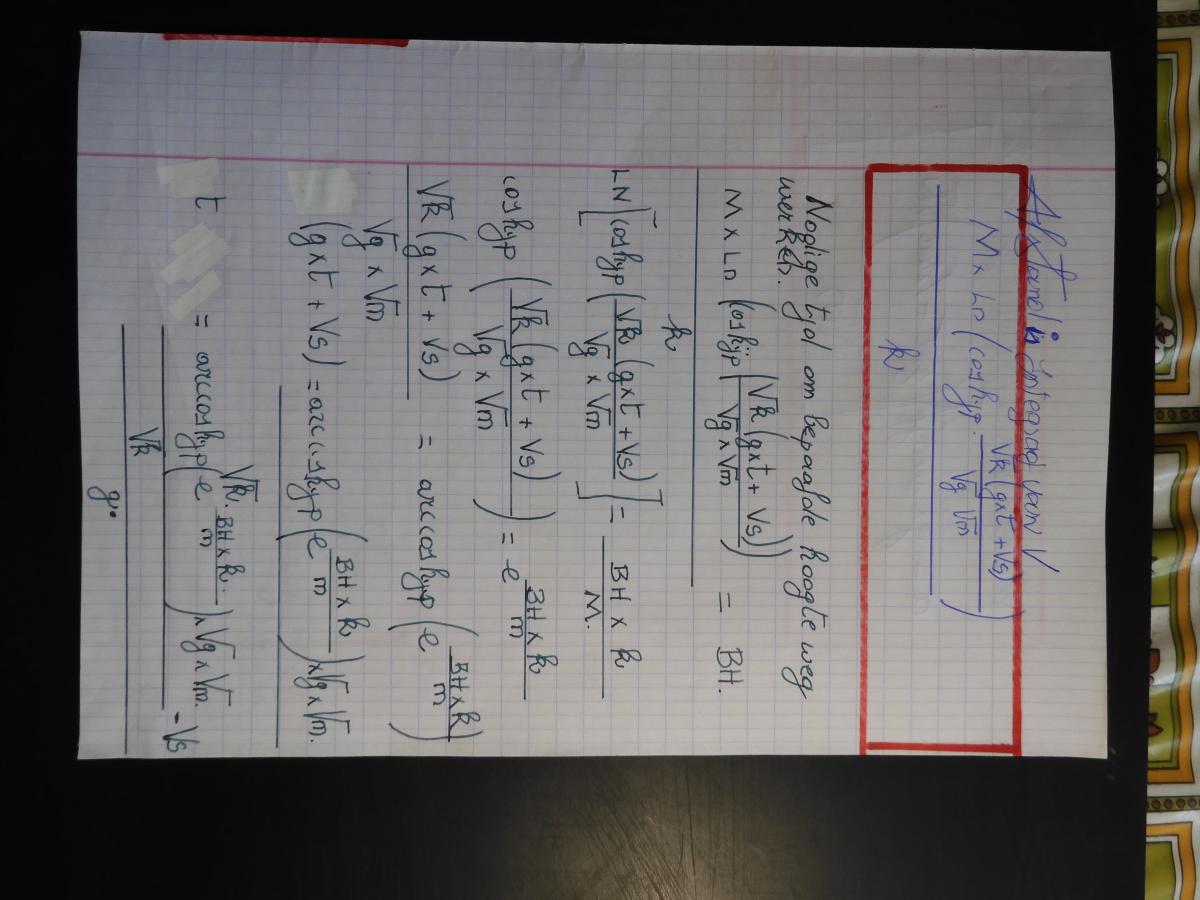 Afstand is integraal van V
M x Ln (cos hyp. √k (gxt + Vs) / √g √m)
k
Nodige tijd om bepaalde hoogte weg
werken.
M x Ln (cos hyp (√k (gxt + Vs) / √g x √m)) / k = BH.
LN [cos hyp (√k (gxt + Vs) / √g x √m)] = BH x k / M.
cos hyp (√k (gxt + Vs) / √g x √m) = e^(BH x k / m)
√k (gxt + Vs) / √g x √m = arccos hyp (e^(BH x k / m))
(gxt + Vs) = arccos hyp (e^(BH x k / m)) x √g x √m.
√k.
t = arccos hyp (e^(BH x k. / m)) x √g x √m. - Vs
√k
g.